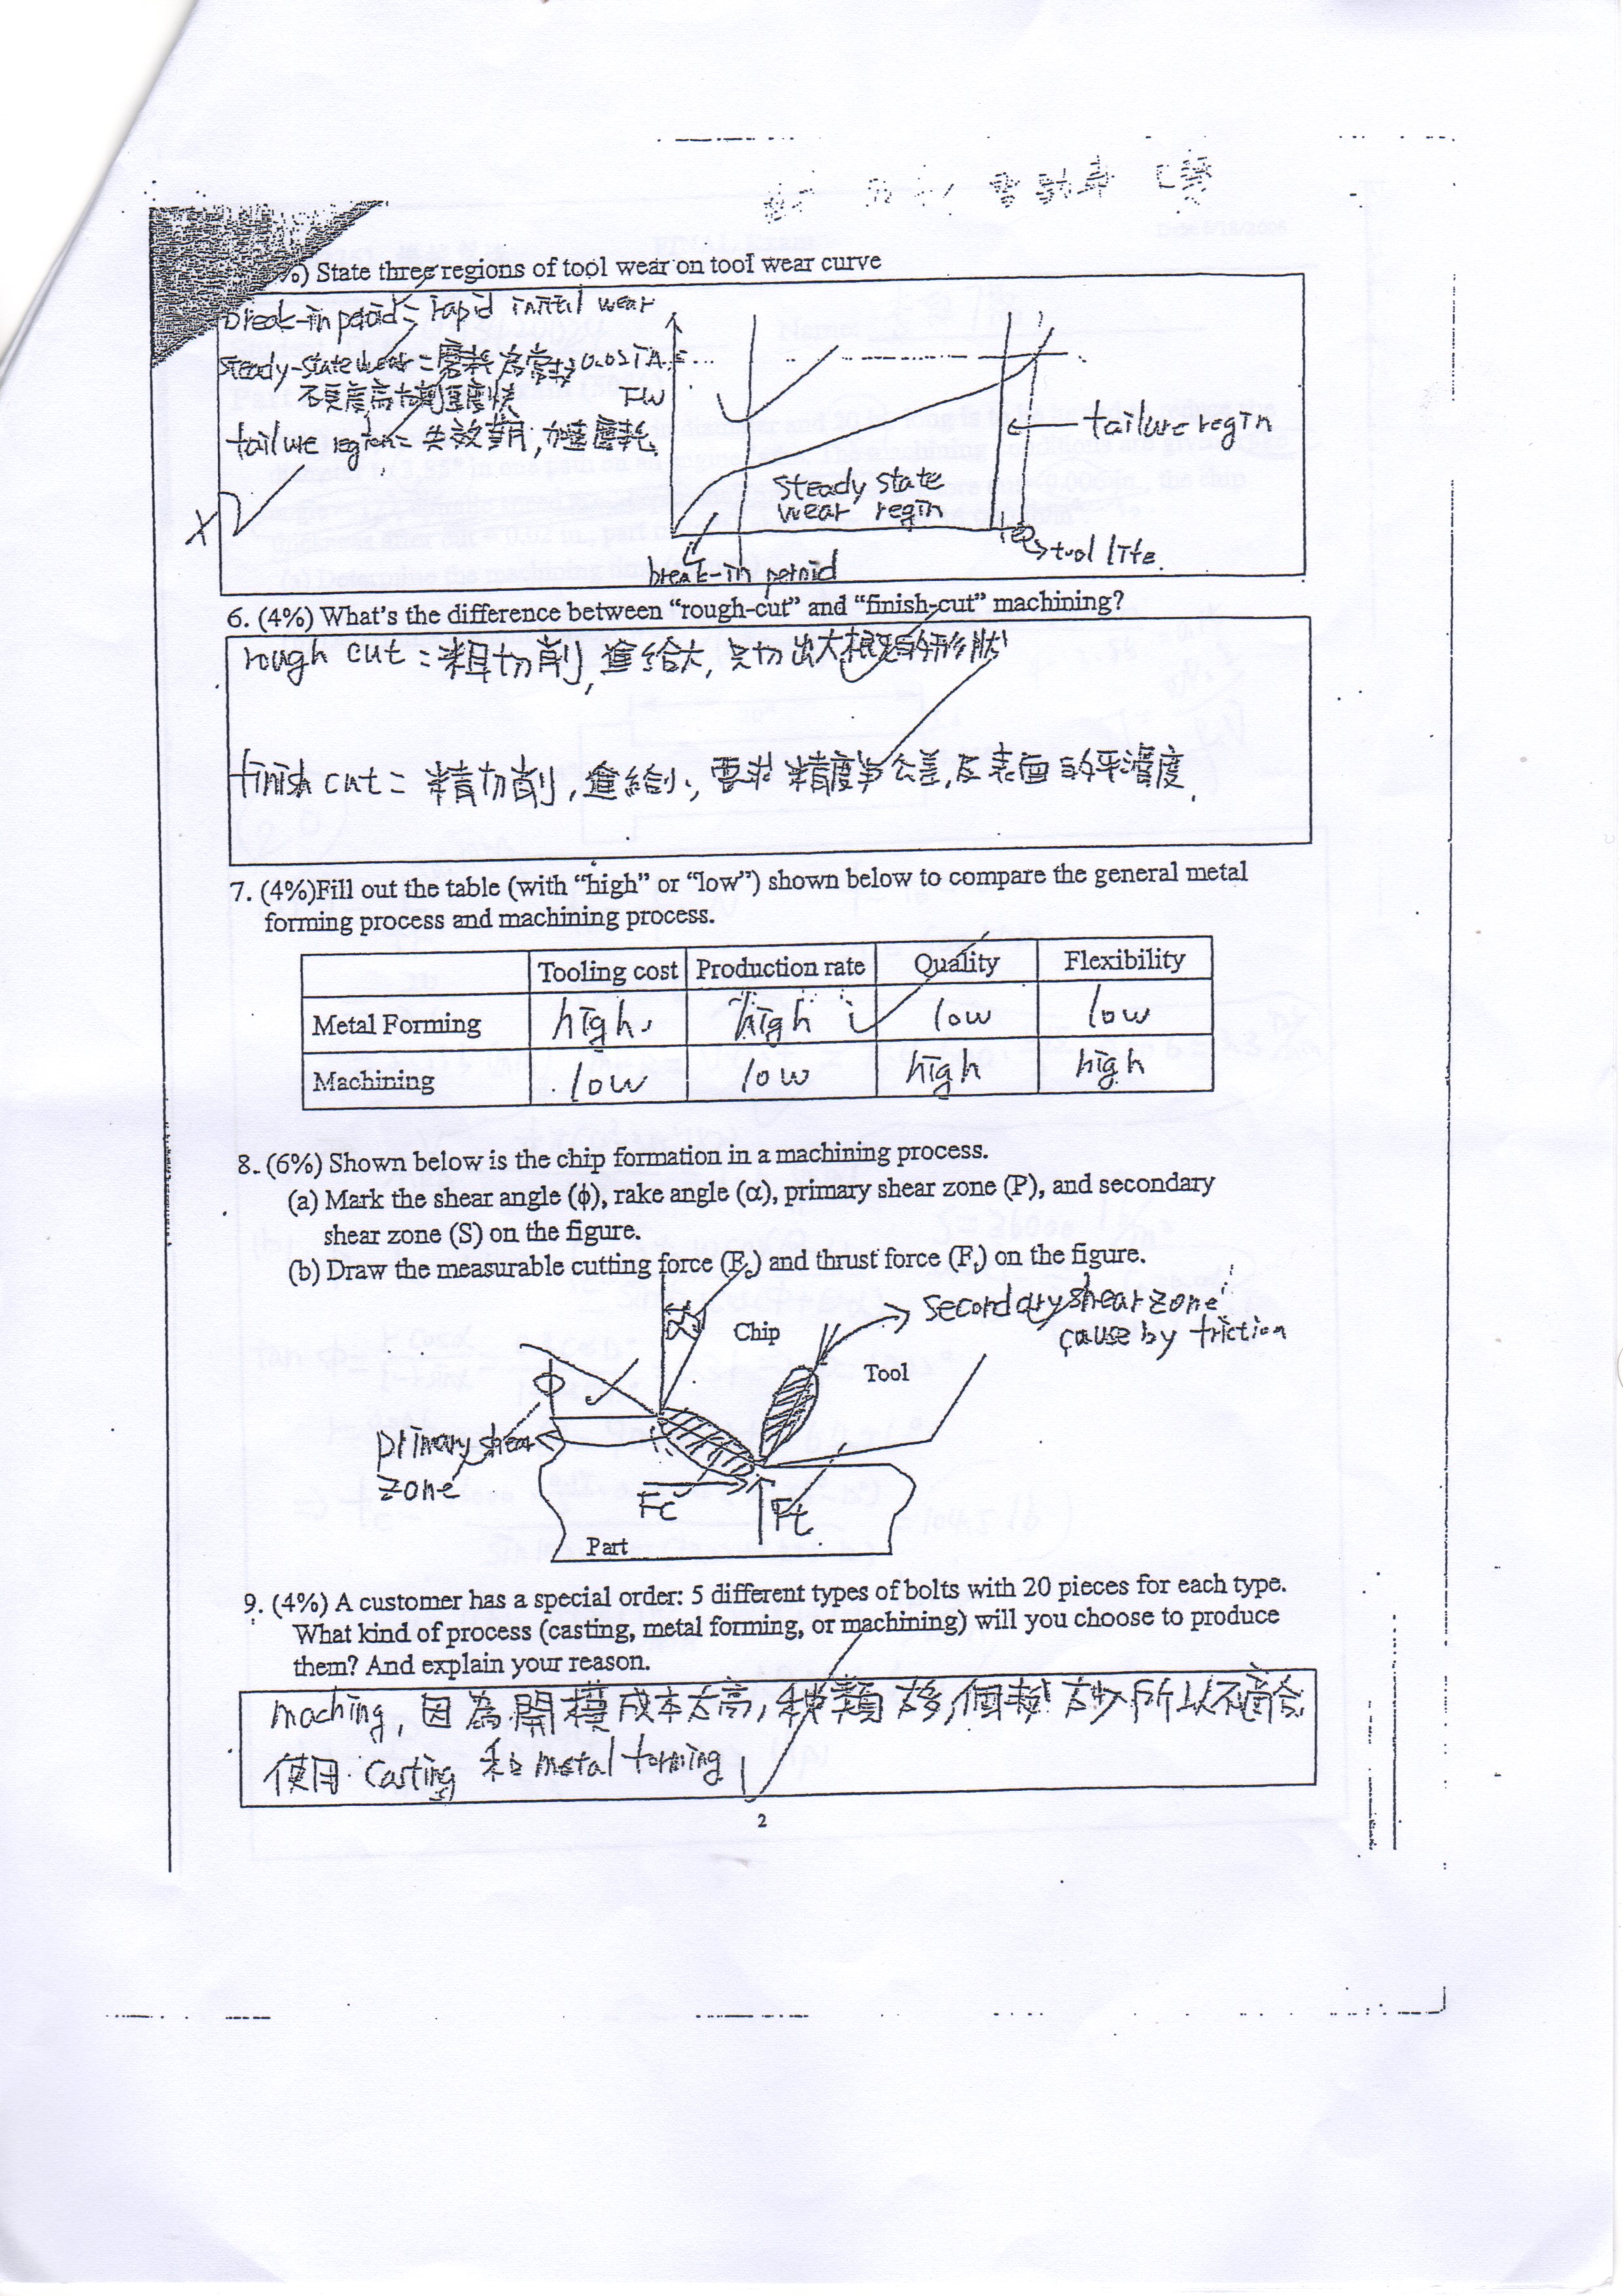 State three regions of tool wear on tool wear curve
break-in peroid = rapid initil wear
Steady-state wear = 磨耗為常數0.02in
FW
failure region = 失效期,加速磨耗
failure regin
Steady state
wear regin
tool life
break-in peroid
6. (4%) What's the difference between “rough-cut” and “finish-cut” machining?
rough cut = 粗切削, 進給大, 只切出大概的形狀
finish cut = 精切削, 進給小, 要求精度與公差,及表面的平滑度.
7. (4%)Fill out the table (with “high” or “low”) shown below to compare the general metal
forming process and machining process.
Tooling cost Production rate Quality Flexibility
Metal Forming high high low low
Machining low low high high
8. (6%) Shown below is the chip formation in a machining process.
(a) Mark the shear angle (ϕ), rake angle (α), primary shear zone (P), and secondary
shear zone (S) on the figure.
(b) Draw the measurable cutting force (Fc) and thrust force (Ft) on the figure.
α
Chip
secondary shear zone
cause by friction
Tool
ϕ
primary shear
zone
Fc
Ft
Part
9. (4%) A customer has a special order: 5 different types of bolts with 20 pieces for each type.
What kind of process (casting, metal forming, or machining) will you choose to produce
them? And explain your reason.
maching, 因為開模成本太高, 種類太多, 個數太少所以不適合
使用 casting 和 metal forming
2